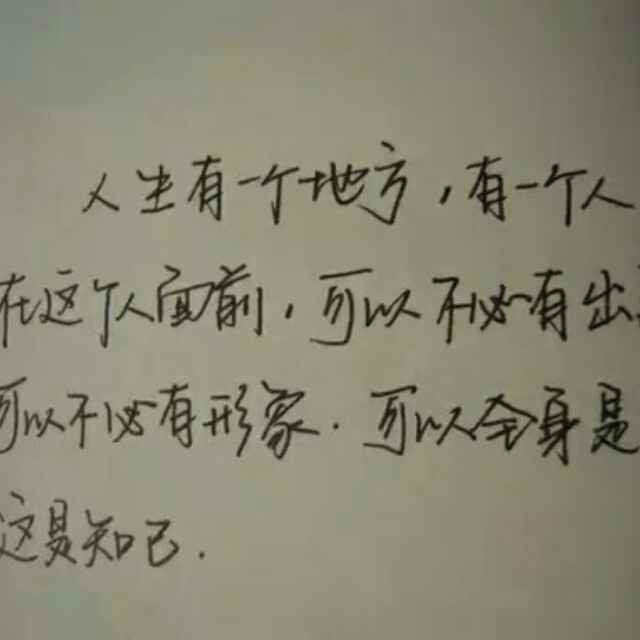 人生有一个地方，有一个人
在这个人面前，可以不必有出
可以不必有形象．可以全身是
这是知己．